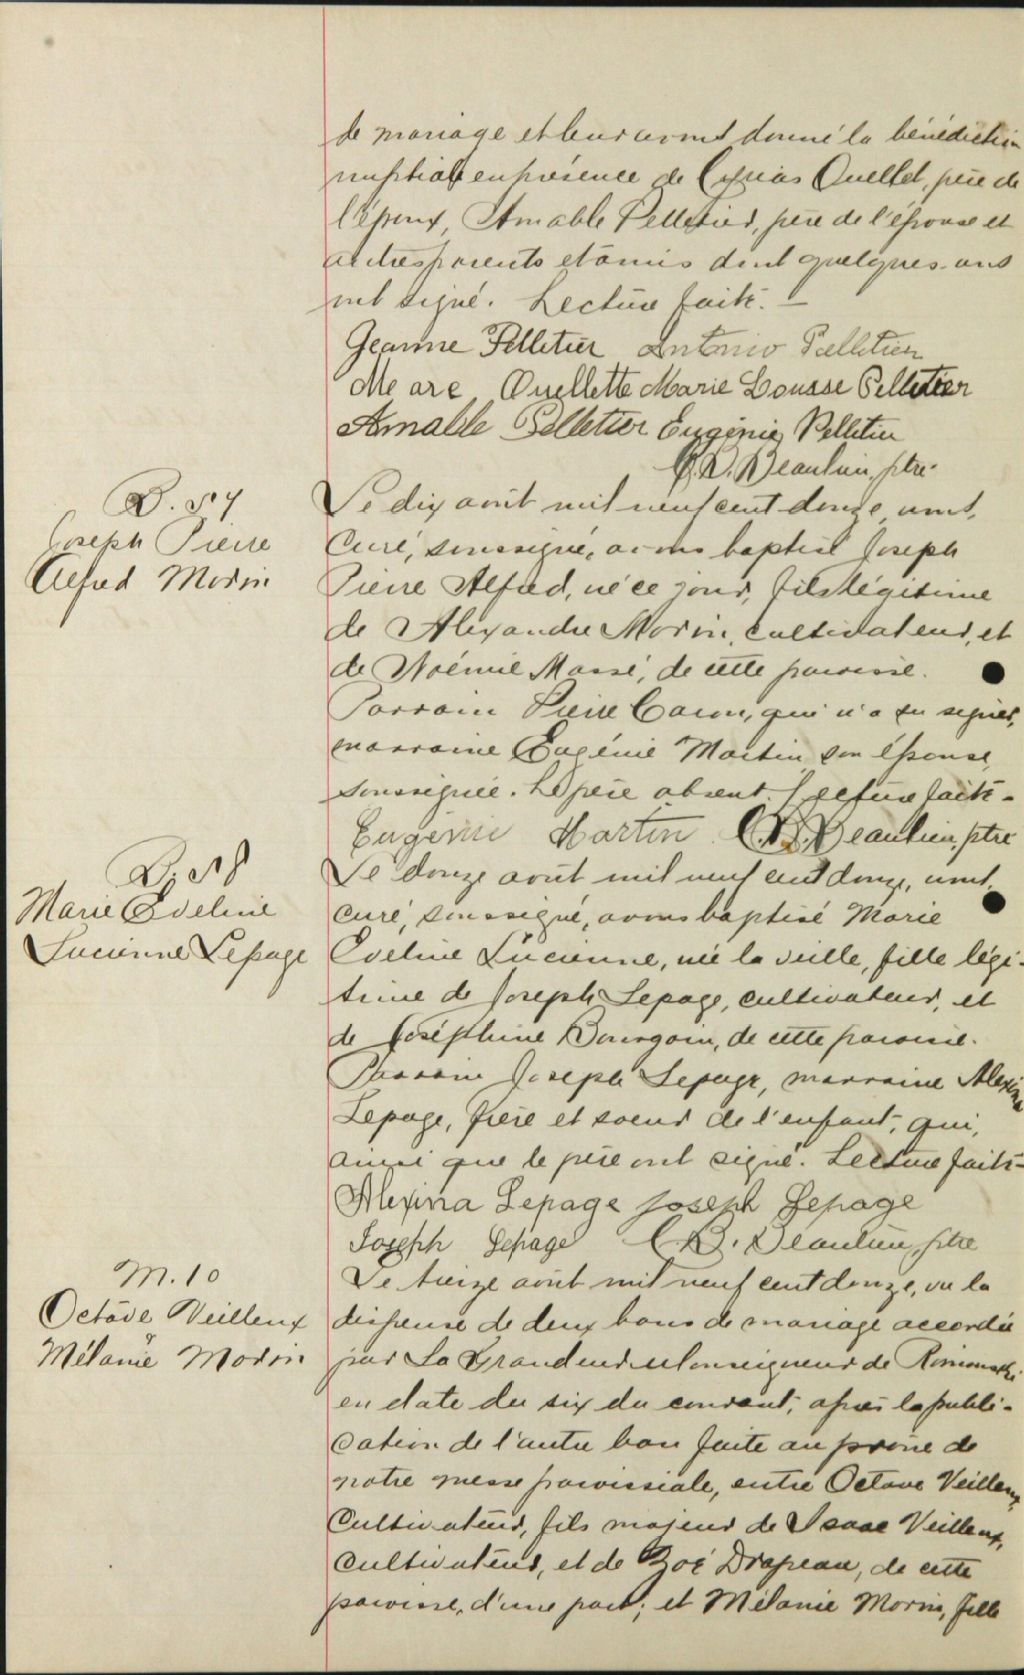 de mariage et leur avons donné la bénédiction
nuptiale en présence de Cyrias Ouellet, père de
l'époux, Amable Pelletier, père de l'épouse et
autres parents et amis dont quelques-uns
ont signé. Lecture faite. —
Jeanne Pelletier Antonio Pelletier
Marc Ouellette Marie Lousse Pelletier
Amable Pelletier Eugénie Pelletier
C.D. Beaulieu, ptre
B. 57
Joseph Pierre
Alfred Morin
Le dix août mil neuf cent douze, nous,
curé, soussigné, avons baptisé Joseph
Pierre Alfred, né ce jour, fils légitime
de Alexandre Morin, cultivateur, et
de Noémie Massé, de cette paroisse.
Parrain Pierre Caron, qui n'a su signer,
marraine Eugénie Martin son épouse,
soussignée. Le père absent. Lecture faite -
Eugénie Martin C.D. Beaulieu, ptre
B. 58
Marie Eveline
Lucienne Lepage
Le douze août mil neuf cent douze, nous,
curé, soussigné, avons baptisé Marie
Eveline Lucienne, née la veille, fille légi-
time de Joseph Lepage, cultivateur, et
de Joséphine Bourgoin, de cette paroisse.
Parrain Joseph Lepage, marraine Alexina
Lepage, frère et soeur de l'enfant, qui,
ainsi que le père ont signé. Lecture faite -
Alexina Lepage Joseph Lepage
Joseph Lepage C.D. Beaulieu, ptre
M. 10
Octave Veilleux
&
Mélanie Morin
Le treize août mil neuf cent douze, vu la
dispense de deux bans de mariage accordée
par Sa Grandeur Monseigneur de Rimouski
en date du six du courant, après la publi-
cation de l'autre ban faite au prône de
notre messe paroissiale, entre Octave Veilleux,
cultivateur, fils majeur de Isaac Veilleux,
cultivateur, et de Zoé Drapeau, de cette
paroisse, d'une part; et Mélanie Morin, fille